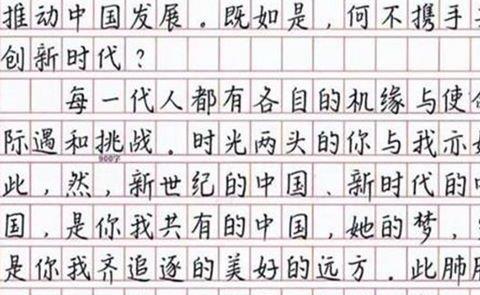 推动中国发展。既如是，何不携手
创新时代？
每一代人都有各自的机缘与使命
际遇和挑战。时光两头的你与我亦
900字
此，然，新世纪的中国、新时代的中
国，是你我共有的中国，她的梦，
是你我齐追逐的美好的远方．此肺